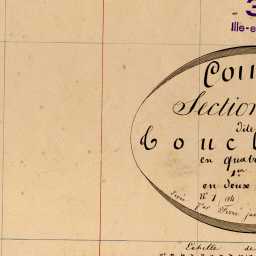 3
Ille-e
Com
Section
dite
Couc
en quat
1re
en deux
N° 1
Echelle de